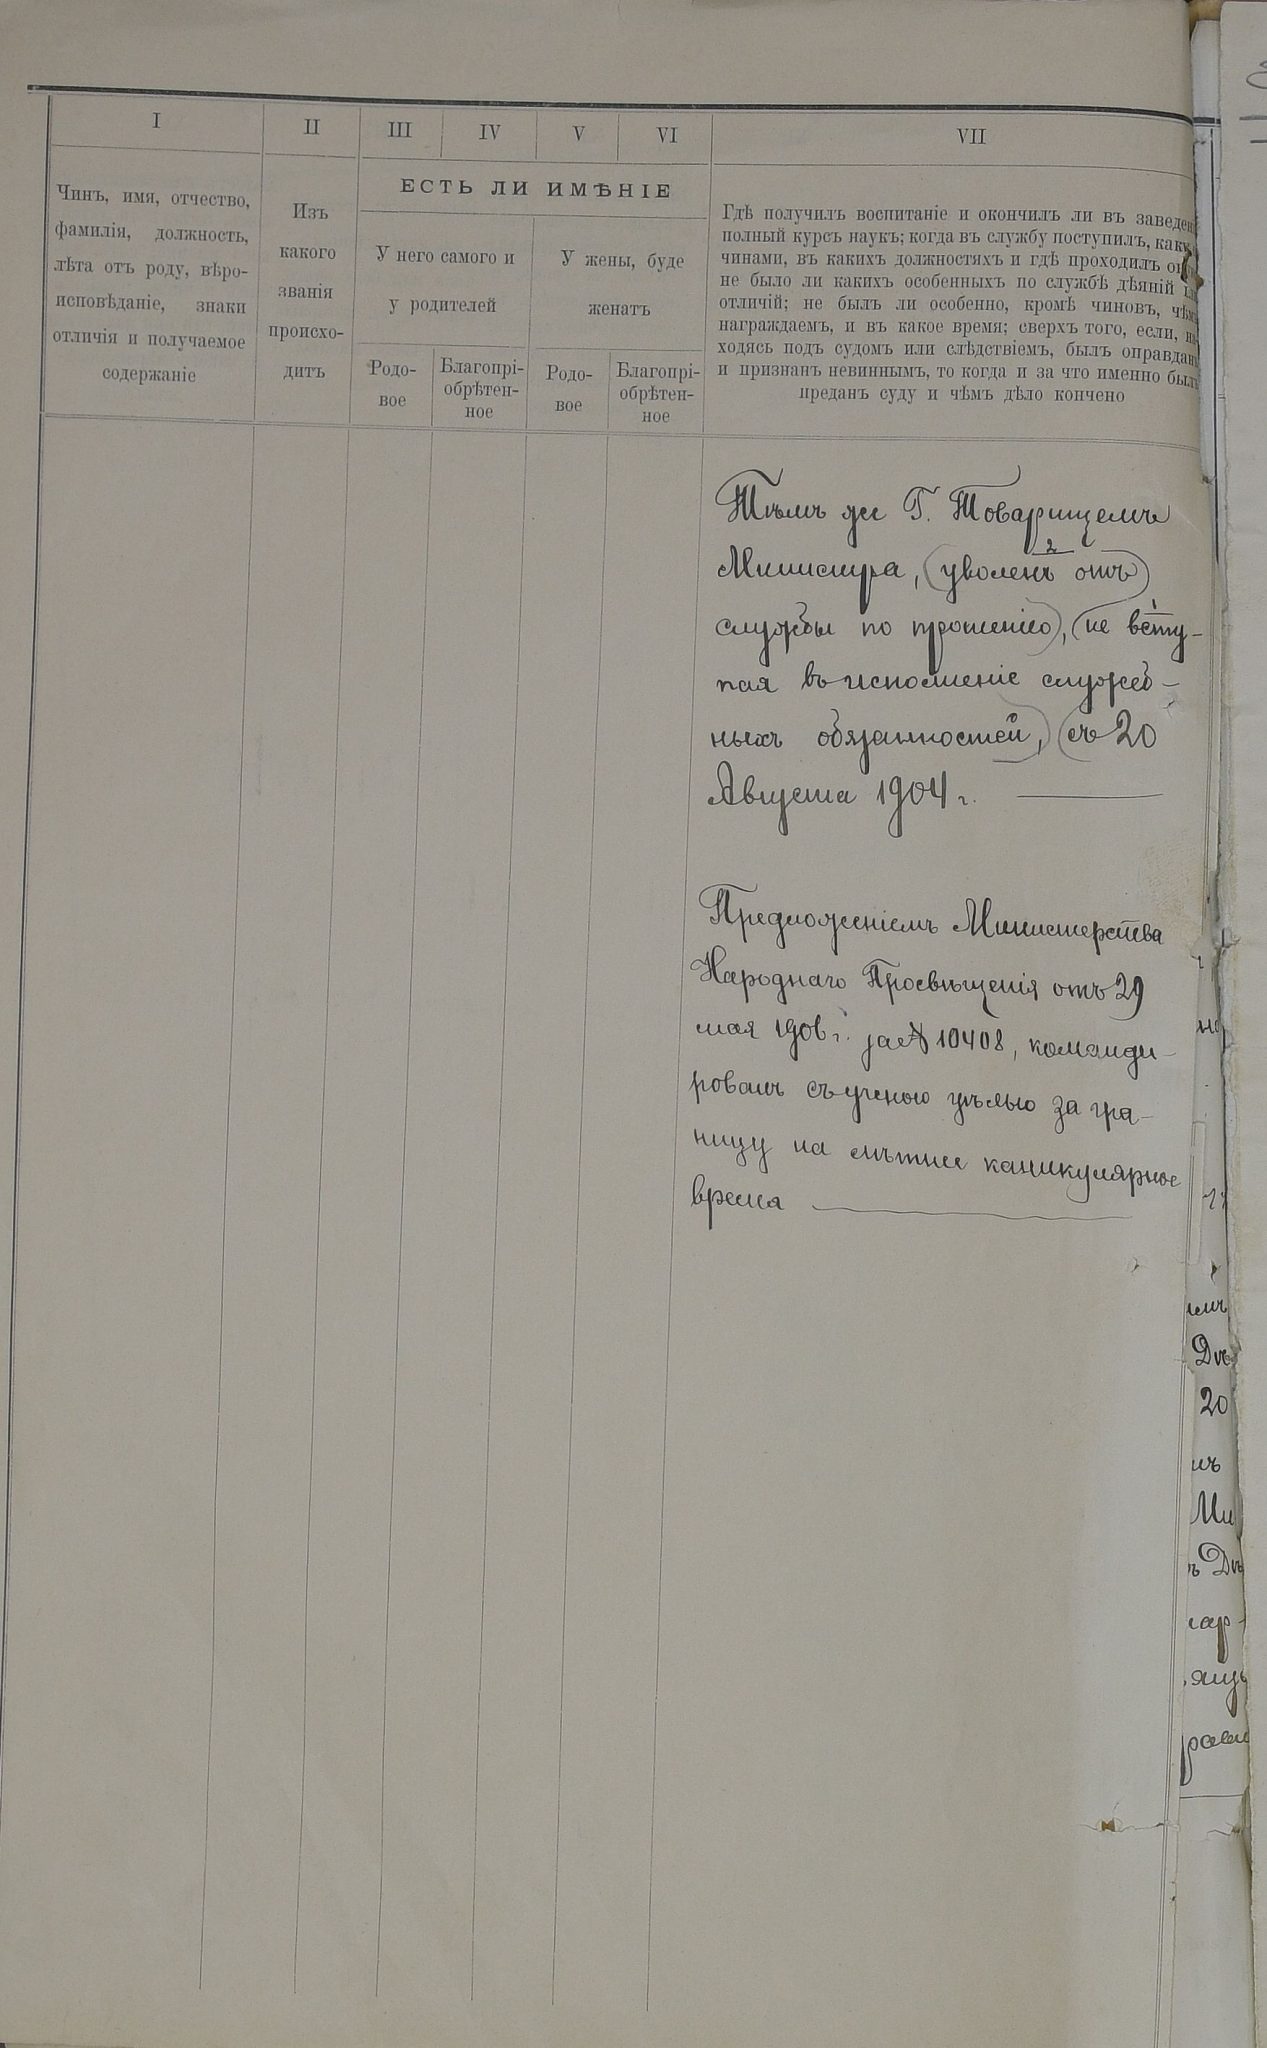 I
II
III
IV
V
VI
VII
Чинъ, имя, отчество,
фамилія, должность,
лѣта отъ роду, вѣро-
исповѣданіе, знаки
отличія и получаемое
содержаніе
Изъ
какого
званія
происхо-
дитъ
ЕСТЬ ЛИ ИМѢНІЕ
У него самого и
у родителей
У жены, буде
женатъ
Родо-
вое
Благопрі-
обрѣтен-
ное
Родо-
вое
Благопрі-
обрѣтен-
ное
Гдѣ получилъ воспитаніе и окончилъ ли въ заведен
полный курсъ наукъ; когда въ службу поступилъ, как
чинами, въ какихъ должностяхъ и гдѣ проходилъ
не было ли какихъ особенныхъ по службѣ дѣяній
отличій; не былъ ли особенно, кромѣ чиновъ, чѣм
награждаемъ, и въ какое время; сверхъ того, если, на
ходясь подъ судомъ или слѣдствіемъ, былъ оправдан
и признанъ невиннымъ, то когда и за что именно былъ
преданъ суду и чѣмъ дѣло кончено
Тѣмъ же Г. Товарищемъ
2
Министра, (уволенъ отъ
1
службы по прошенію), (не всту-
пая въ исполненіе служеб-
ныхъ обязанностей,) (съ 20
Августа 1904 г.
Предложеніемъ Министерства
Народнаго Просвѣщенія отъ 29
мая 1906 г. за № 10408, команди-
рованъ съ ученою цѣлью за гра-
ницу на лѣтнее каникулярное
время
20
Ми